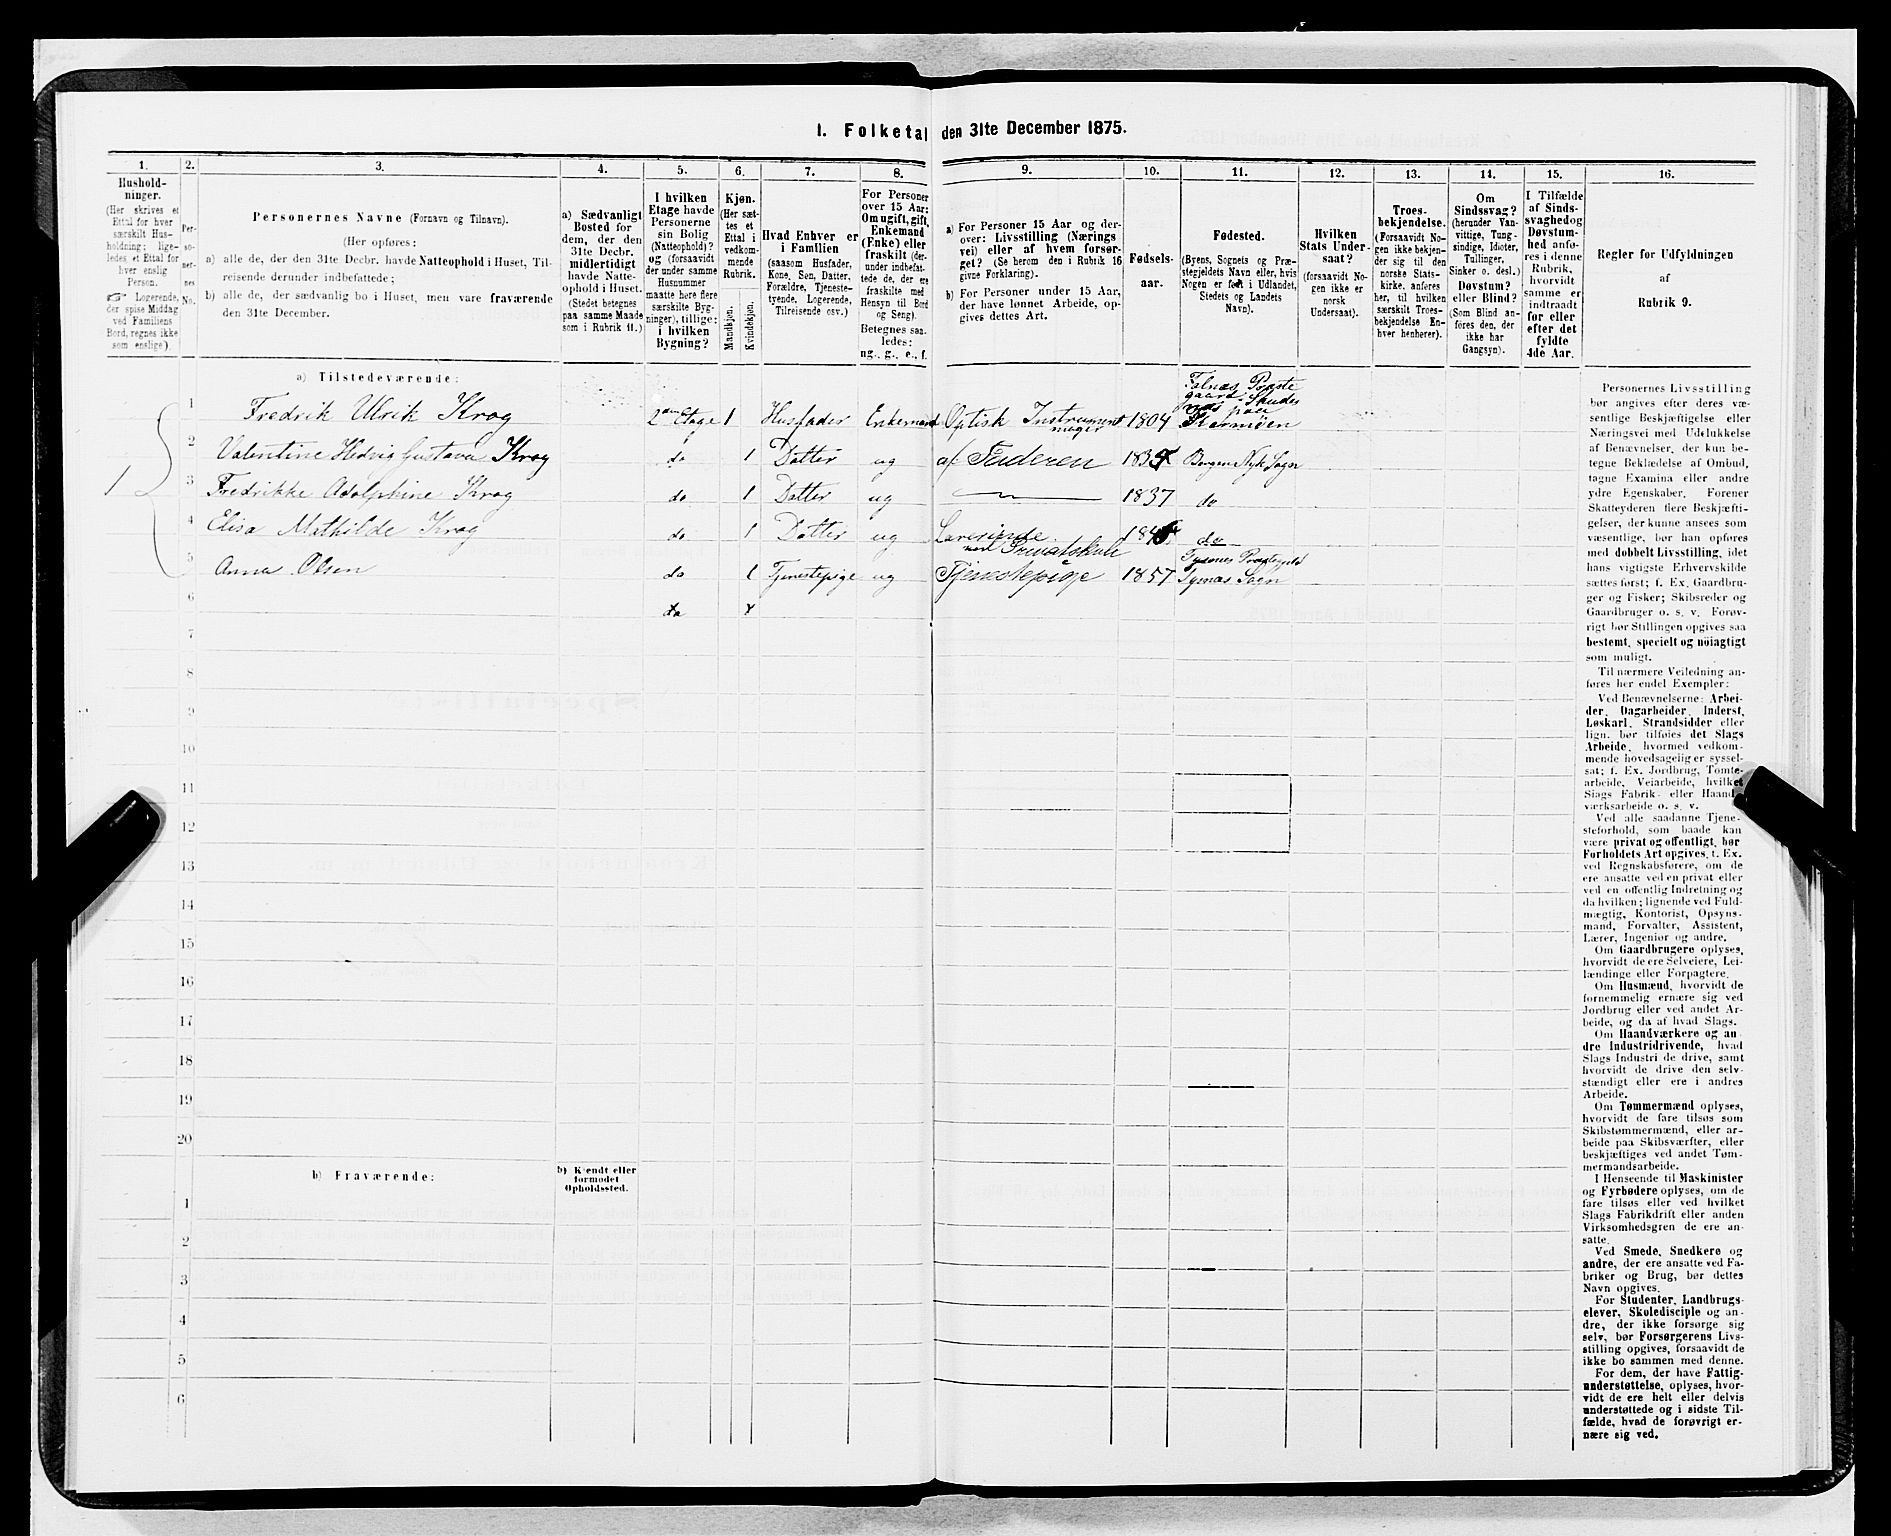 1. Folketal den 31te December 1875.
1. 2. 3. 4. 5. 6. 7. 8. 9. 10. 11. 12. 13. 14. 15. 16.
Hushold-
ninger.
(Her skrives et
Ettal for hver
særskilt Hus-
holdning; lige-
ledes et Ettal for
hver enslig
Person.
☞ Logerende,
der spise Middag
ved Familiens
Bord, regnes ikke
som enslige).
Per-
so-
ner-
nes
No.
Personernes Navne (Fornavn og Tilnavn).
(Her opføres:
a) alle de, der den 31te Decbr. havde Natteophold i Huset, Til-
reisende derunder indbefattede;
b) alle de, der sædvanlig bo i Huset, men vare fraværende
den 31te December.
a) Sædvanligt
Bosted for
dem, der den
31te Decbr.
midlertidigt
havde Natte-
ophold i Huset.
(Stedet betegnes
paa samme Maade
som i Rubrik 11.)
I hvilken
Etage havde
Personerne
sin Bolig
(Natteophold)?
og (forsaavidt
der under samme
Husnummer
maatte høre flere
særskilte Byg-
ninger), tillige:
i hvilken
Bygning?
Kjøn.
(Her sæt-
tes et
Ettal i
vedkom-
mende
Rubrik.
Mandkjøn.
Kvindekjøn.
Hvad Enhver er
i Familien
(saasom Husfader,
Kone, Søn, Datter,
Forældre, Tjeneste-
tyende, Logerende,
Tilreisende osv.)
For Personer
over 15 Aar:
Om ugift, gift,
Enkemand
(Enke) eller
fraskilt (der-
under indbefat-
tede de, der ere
fraskilte med
Hensyn til Bord
og Seng).
Betegnes saa-
ledes:
ug., g., e., f.
a) For Personer 15 Aar og der-
over: Livsstilling (Nærings
vei) eller af hvem forsør-
get? (Se herom den i Rubrik 16
givne Forklaring).
b) For Personer under 15 Aar,
der have lønnet Arbeide, op-
gives dettes Art.
Fødsels-
aar.
Fødested.
(Byens, Sognets og Præ-
stegjeldets Navn eller, hvis
Nogen er født i Udlandet,
Stedets og Landets
Navn).
Hvilken
Stats Under-
saat?
(forsaavidt No-
gen ikke er
norsk
Undersaat).
Troes-
bekjendelse.
(Forsaavidt No-
gen ikke bekjen-
der sig til den
norske Stats-
kirke, anføres
her, til hvilken
særskilt Troes-
bekjendelse En-
hver henhører).
Om
Sindssvag?
(herunder Van-
vittige, Tung-
sindige, Idioter,
Tullinger,
Sinker o. desl.)
Døvstum?
eller Blind?
(Som Blind an-
føres den, der
ikke har
Gangsyn).
I Tilfælde
af Sinds-
svaghed og
Døvstum-
hed anfø-
res i denne
Rubrik,
hvorvidt
samme er
indtraadt
før eller
efter det
fyldte
4de Aar.
Regler for Udfyldningen
af
Rubrik 9.
a) Tilstedeværende:
1 Fredrik Ulrik Krog 2den Etage 1 Husfader Enkemand Optisk Instrument mager 1804 Præste gaard Skudes næs paa Karmöen
1 2 Valentine Hedvig Gustava Krog do 1 Datter ug af Faderen Bergen Nyk Sogn
3 Fredrikke Adolphine Krog do 1 Datter ug 1837 do
4 Elisa Mathilde Krog do 1 Datter ug Lærerinde ved Privatskole do
5 Anna Olsen do 1 Tjenestepige ug Tjenestepige 1857 Sogn
6 do
7
8
9
10
11
12
13
14
15
16
17
18
19
20
b) Fraværende: b) Kjendt eller
formodet
Opholdssted.
1
2
3
4
5
6
Personernes Livsstilling
bør angives efter deres væ-
sentlige Beskjæftigelse eller
Næringsvei med Udelukkelse
af Benævnelser, der kun be-
tegne Beklædelse af Ombud,
tagne Examina eller andre
ydre Egenskaber. Forener
Skatteyderen flere Beskjæfti-
gelser, der kunne ansees som
væsentlige, bør han opføres
med dobbelt Livsstilling, idet
hans vigtigste Erhvervskilde
sættes først; f. Ex. Gaardbru-
ger og Fisker; Skibsreder og
Gaardbruger o. s. v. Forøv-
rigt bør Stillingen opgives saa
bestemt, specielt og nöiagtigt
som muligt.
Til nærmere Veiledning an-
føres her endel Exempler:
Ved Benævnelserne: Arbei-
der, Dagarbeider, Inderst,
Løskarl, Strandsidder eller
lign. bør tilføies det Slags
Arbeide, hvormed vedkom-
mende hovedsagelig er syssel-
sat; f. Ex. Jordbrug, Tomte-
arbeide, Veiarbeide, hvilket
Slags Fabrik- eller Haand-
værksarbeide o. s. v.
Ved alle saadanne Tjene-
steforhold, som baade kan
være privat og offentligt, bør
Forholdets Art opgives, f. Ex.
ved Regnskabsførere, om de
ere ansatte ved en privat eller
ved en offentlig Indretning og
da hvilken; lignende ved Fuld-
mægtig, Kontorist, Opsyns-
mand, Forvalter, Assistent,
Lærer, Ingeniør og andre.
Om Gaardbrugere oplyses,
hvorvidt de ere Selveiere, Lei-
lændinge eller Forpagtere.
Om Husmænd, hvorvidt de
fornemmelig ernære sig ved
Jordbrug eller ved andet Ar-
beide, og da af hvad Slags.
Om Haandværkere og an
dre Industridrivende, hvad
Slags Industri de drive, samt
hvorvidt de drive den selv-
stændigt eller ere i andres
Arbeide.
Om Tømmermænd oplyses,
hvorvidt de fare tilsøs som
Skibstømmermænd, eller ar-
beide paa Skibsværfter, eller
beskjæftiges ved andet Tøm-
mermandsarbeide.
I Henseende til Maskinister
og Fyrbødere oplyses, om de
fare tilsøs eller ved hvilket
Slags Fabrikdrift eller anden
Virksomhedsgren de ere an-
satte.
Ved Smede, Snedkere og
andre, der ere ansatte ved Fa-
briker og Brug, bør dettes
Navn opgives.
For Studenter, Landbrugs-
elever, Skoledisciple og an-
dre, der ikke forsørge sig
selv, bør Forsørgerens Livs-
stilling opgives, forsaavidt de
ikke bo sammen med denne.
For dem, der have Fattig-
understøttelse, oplyses, hvor-
vidt de ere helt eller delvis
understøttede og i sidste Til-
fælde, hvad de forøvrigt er-
nære sig ved.